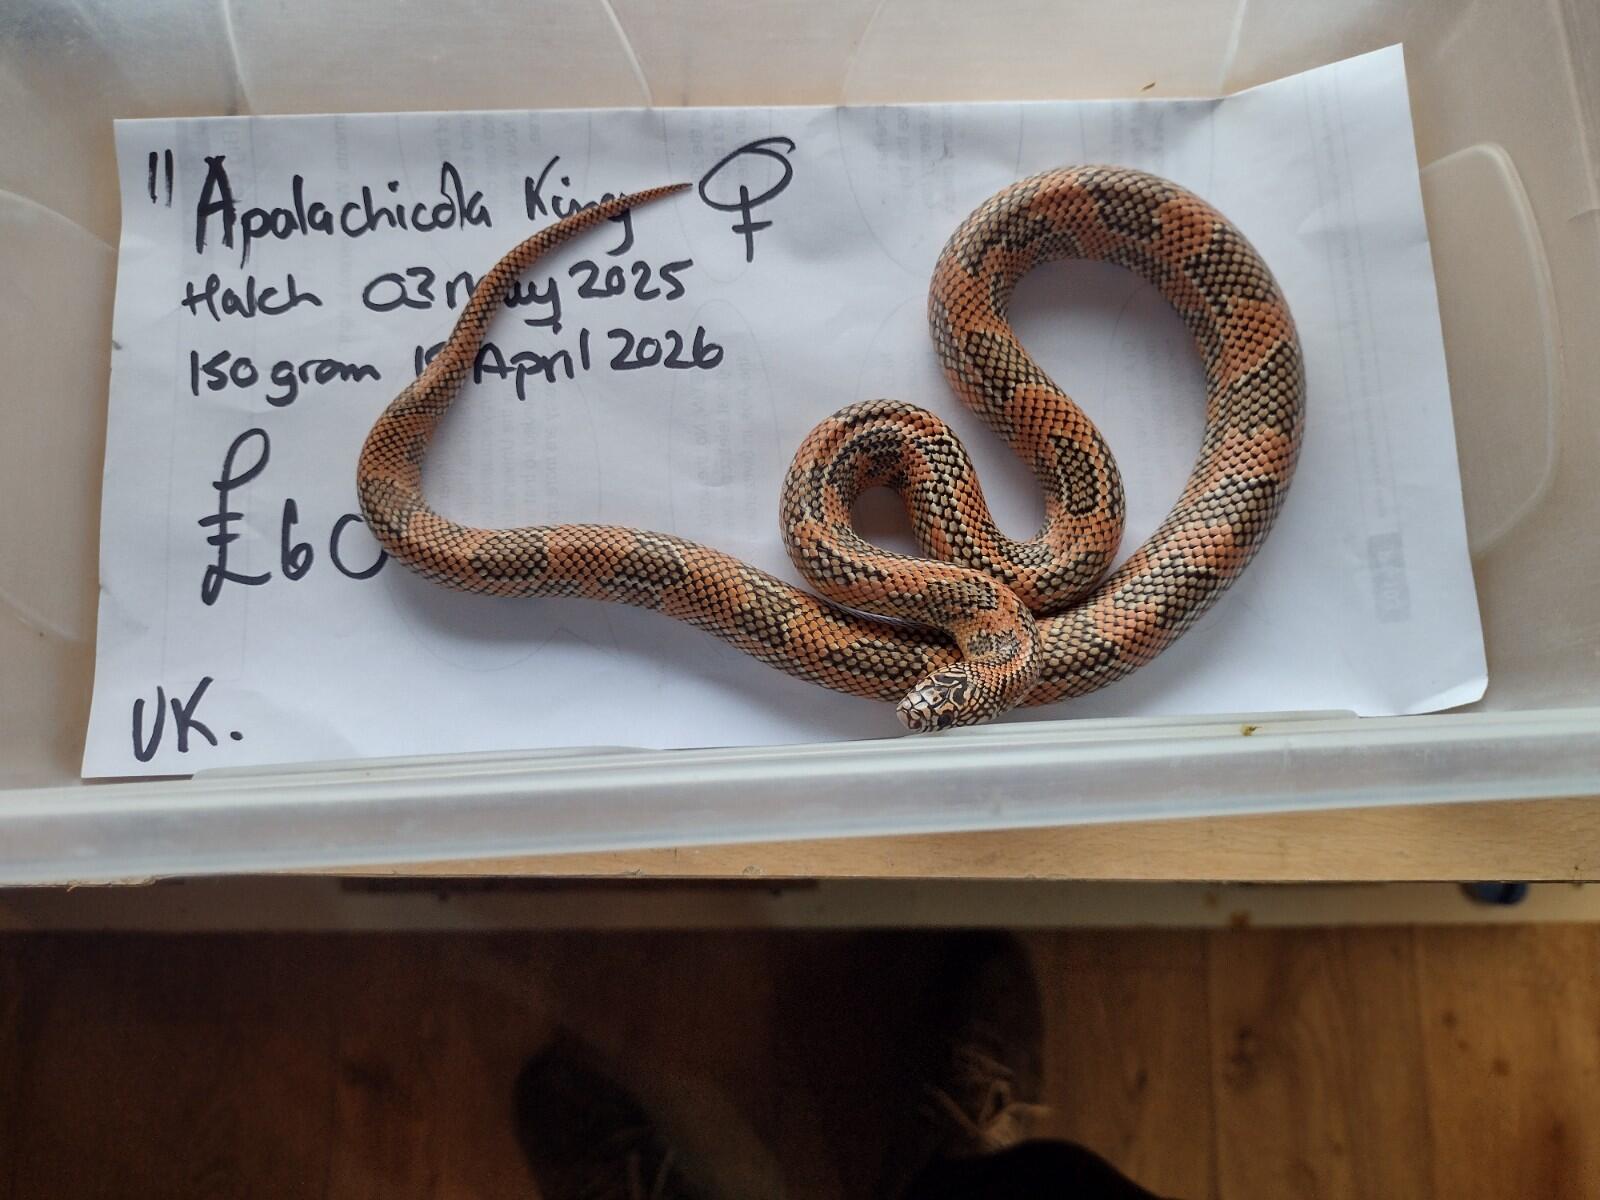 " Apalachicola King ♀
Hatch 03 May 2025
150 gram April 2026
£60
UK.